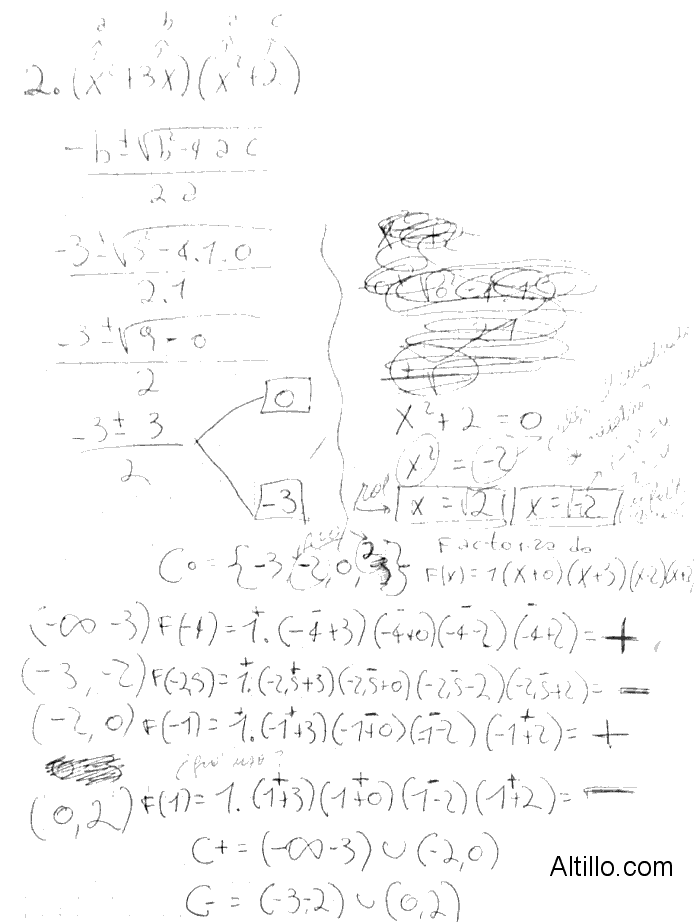 a b a c
2. (x²+3x)(x²+2)
-b±√b²-4ac
2a
-3±√3²-4.1.0
2.1
-3±√9-0
2
-3±3
2
0
-3
x²+2=0
x² = -2
x=√2 x=√-2
C0 = {-3,-2,0,2}
Factorizado
F(x)=1(x+0)(x+3)(x-2)(x+2)
(-∞ -3) F(-4) = 1.(-4+3)(-4+0)(-4-2)(-4+2) = +
(-3,-2) F(-2,5) = 1.(-2,5+3)(-2,5+0)(-2,5-2)(-2,5+2) = -
(-2,0) F(-1) = 1.(-1+3)(-1+0)(-1-2)(-1+2) = +
¿qué uso?
(0,2) F(1) = 1.(1+3)(1+0)(1-2)(1+2) = -
C+ = (-∞-3) ∪ (-2,0)
C- = (-3-2) ∪ (0,2)
Altillo.com